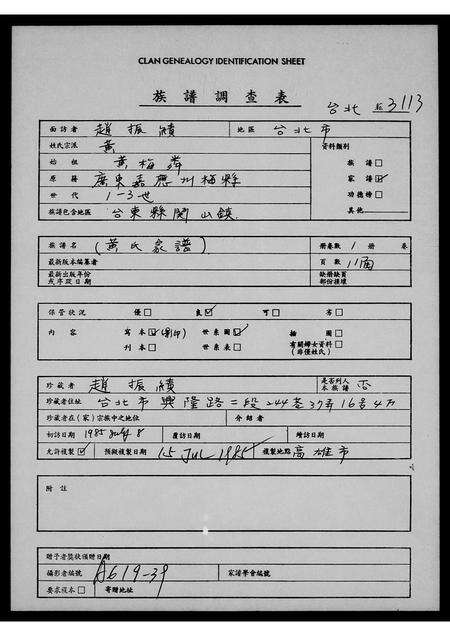 CLAN GENEALOGY IDENTIFICATION SHEET
族譜調查表
台北 3113
面訪者 趙振績 地區 台北市
姓氏宗派 黃 資料類別
始祖 黃梅 族譜□
原籍 廣東嘉應州梅縣 家譜☑
世代 1-3世 功德榜□
族譜包含地區 台東縣關山鎮 其他
族譜名 (黃氏家譜) 冊卷數 1 冊 卷
最新版本編纂者 頁數 11面
最新出版年份或序跋日期 缺冊缺頁部份損壞
保管狀況 優□ 良☑ 可□ 劣□
內容 寫本☑ (影印) 世系圖☑ 插圖□
刊本□ 世系表□ 有關婦女資料□ (非僅姓氏)
珍藏者 趙振績 是否列入本族譜 否
珍藏者住址 台北市興隆路二段244巷37弄16号4
珍藏者在(家)宗族中之地位 介紹者
初訪日期 1985 July 8 覆訪日期 增訪日期
允許複製☑ 預擬複製日期 15 JUL 1985 複製地點 高雄市
附註
贈予者獎狀頒贈日期
攝影者編號 A619-39 家譜學會編號
要求複本□ 寄贈地址